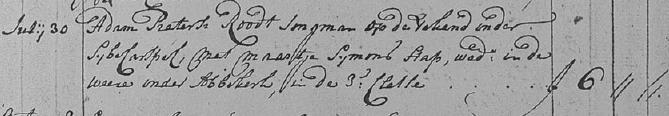 July 30 Adam Pietersz Roodt Jongman op de Veland onder
Sybecarspel, met maartje Symons Stap, wed: in de
weere onder Abbekerk, in de 3e Classe . . . . . ƒ 6 " "